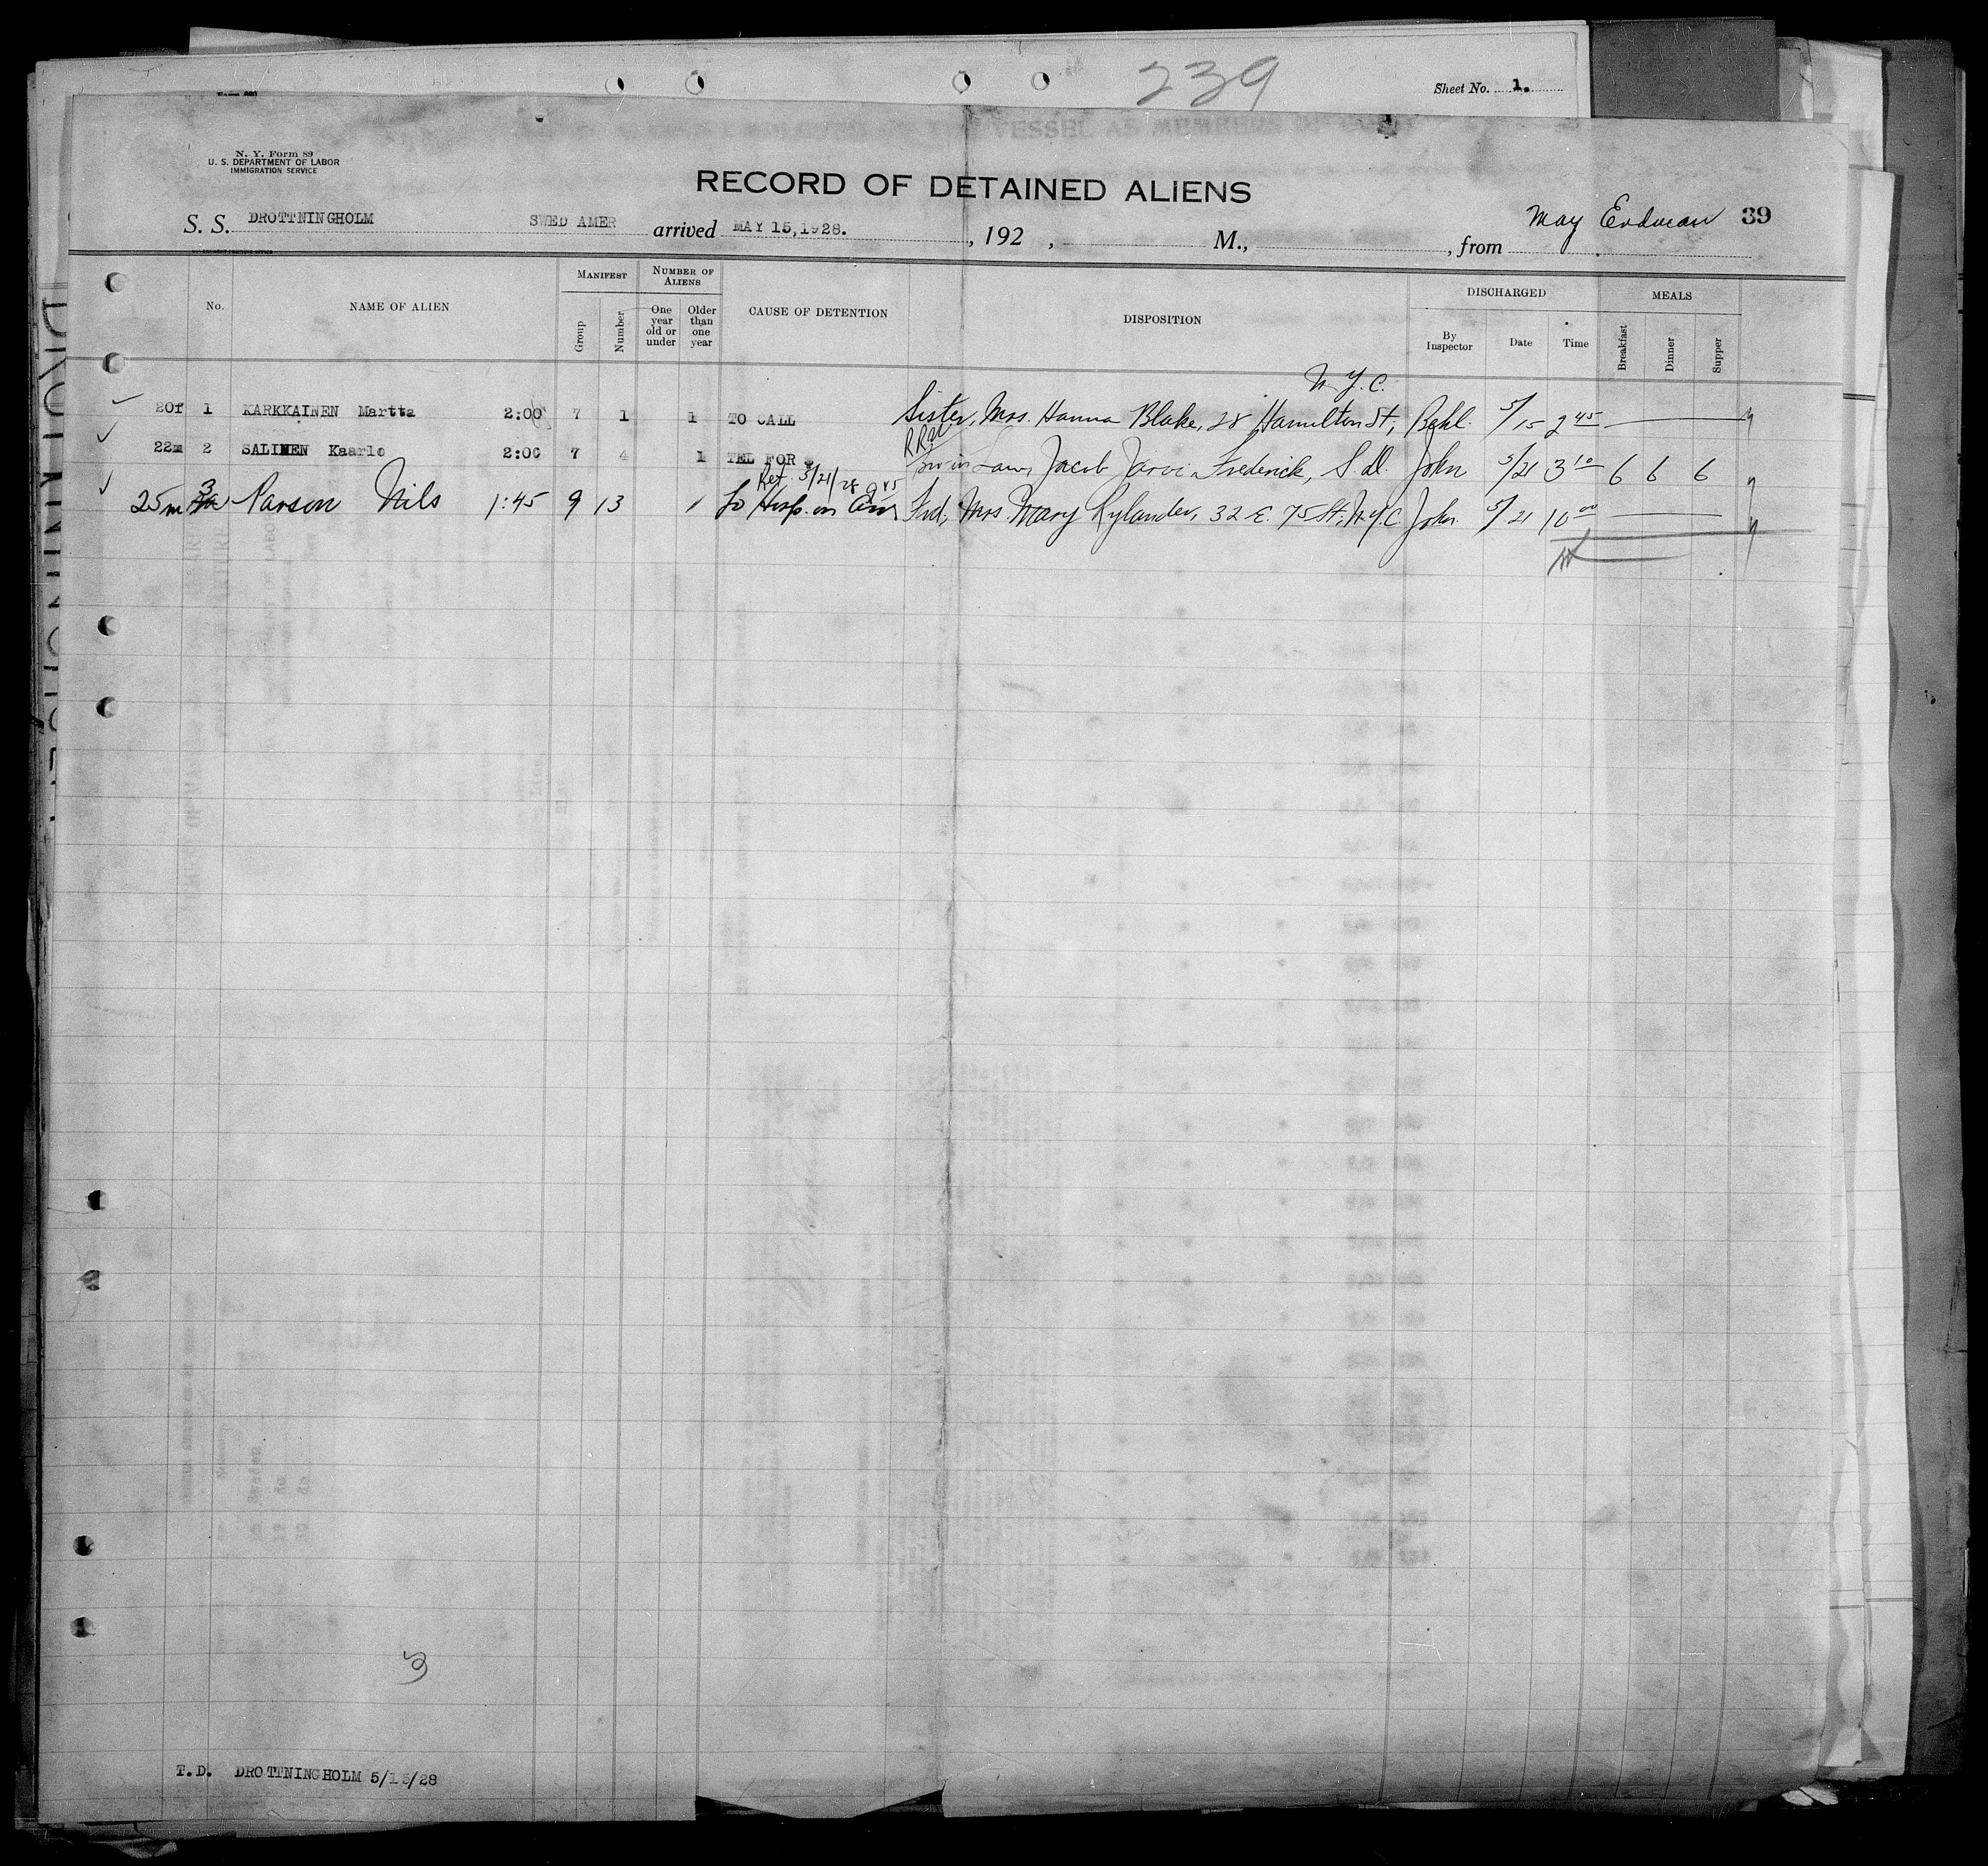 239
Sheet No. 1.
N. Y. Form 89
U. S. DEPARTMENT OF LABOR
IMMIGRATION SERVICE
RECORD OF DETAINED ALIENS
S. S. DROTTNINGHOLM SWED AMER arrived MAY 15,1928. , 192 , M., , from May Erdman 39
No. NAME OF ALIEN MANIFEST Group Number NUMBER OF ALIENS One year old or under Older than one year CAUSE OF DETENTION DISPOSITION DISCHARGED By Inspector Date Time MEALS Breakfast Dinner Supper
N.Y.C.
20f 1 KARKKAINEN Martta 2:00 7 1 1 TO CALL Sister, Mrs. Hanna Blake, 28 Hamilton St, 5/15 2 45
22m 2 SALINEN Kaarlo 2:00 7 4 1 TEL FOR Jacob Jarvi Frederick, S.D. John 5/21 3 10 6 6 6
Ret. 5/21/28 9 45
25m 3 Parson Nils 1:45 9 13 1 To Hosp. on Frd, Mrs. Mary Rylander, 32 E. 75 St, N.Y.C John. 5/21 10 00
3
T.D. DROTTNINGHOLM 5/15/28